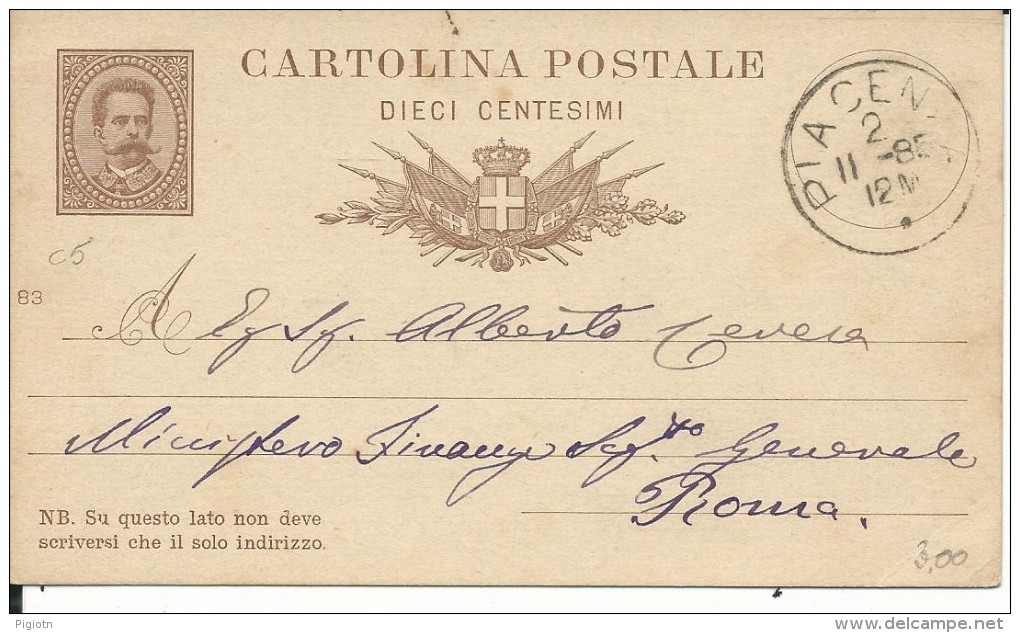 CARTOLINA POSTALE
DIECI CENTESIMI
PIACEN
2
11 -85
12 M
C5
83
A Eg Sg. Alberto
Ministero Finanze Seg.to Generale
Roma.
NB. Su questo lato non deve
scriversi che il solo indirizzo.
3,00
Pigiotn
delcampe.net